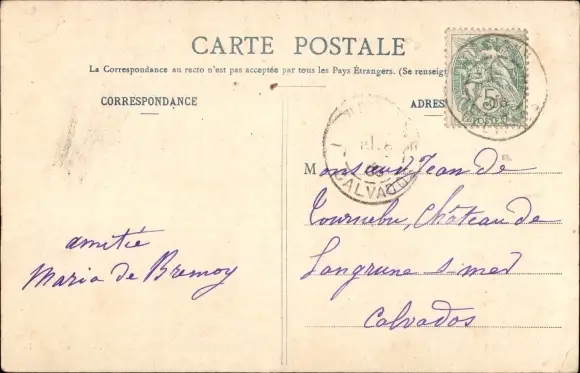 CARTE POSTALE
La Correspondance au recto n'est pas acceptée par tous les Pays Étrangers. (Se renseign
CORRESPONDANCE
ADRES
5
CALVADOS
Monsieur Jean de
Tournebu, Château de
Langrune s-mer
Calvados
amitié
Maria de Bremoy